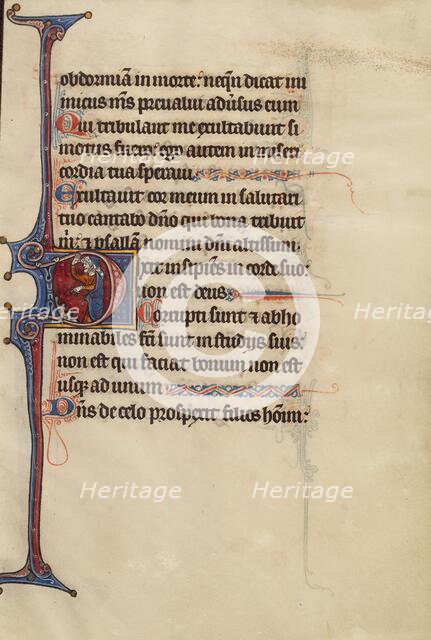 obdormiã in morte: neqñ dicat ini
micus m̃s preualui aduˀsus eum
Qui tribulant me exultabunt si
motus fuero: ego autem in miseri
cordia tua speraui.
Exultabit cor meum in salutari
tuo cantabo dño qui bona tribuit
m̃: & psallã nomini dñi altissimi
Dixit insipiẽs in corde suo:
non est deus.
Corrupti sunt & abho
minabiles fc̃i sunt in studijs suis:
non est qui faciat bonum non est
usq; ad unum
Dñs de celo prospexit sup filios hõim:
Heritage
Heritage
Heritage
Heritage
Heritage
Heritage